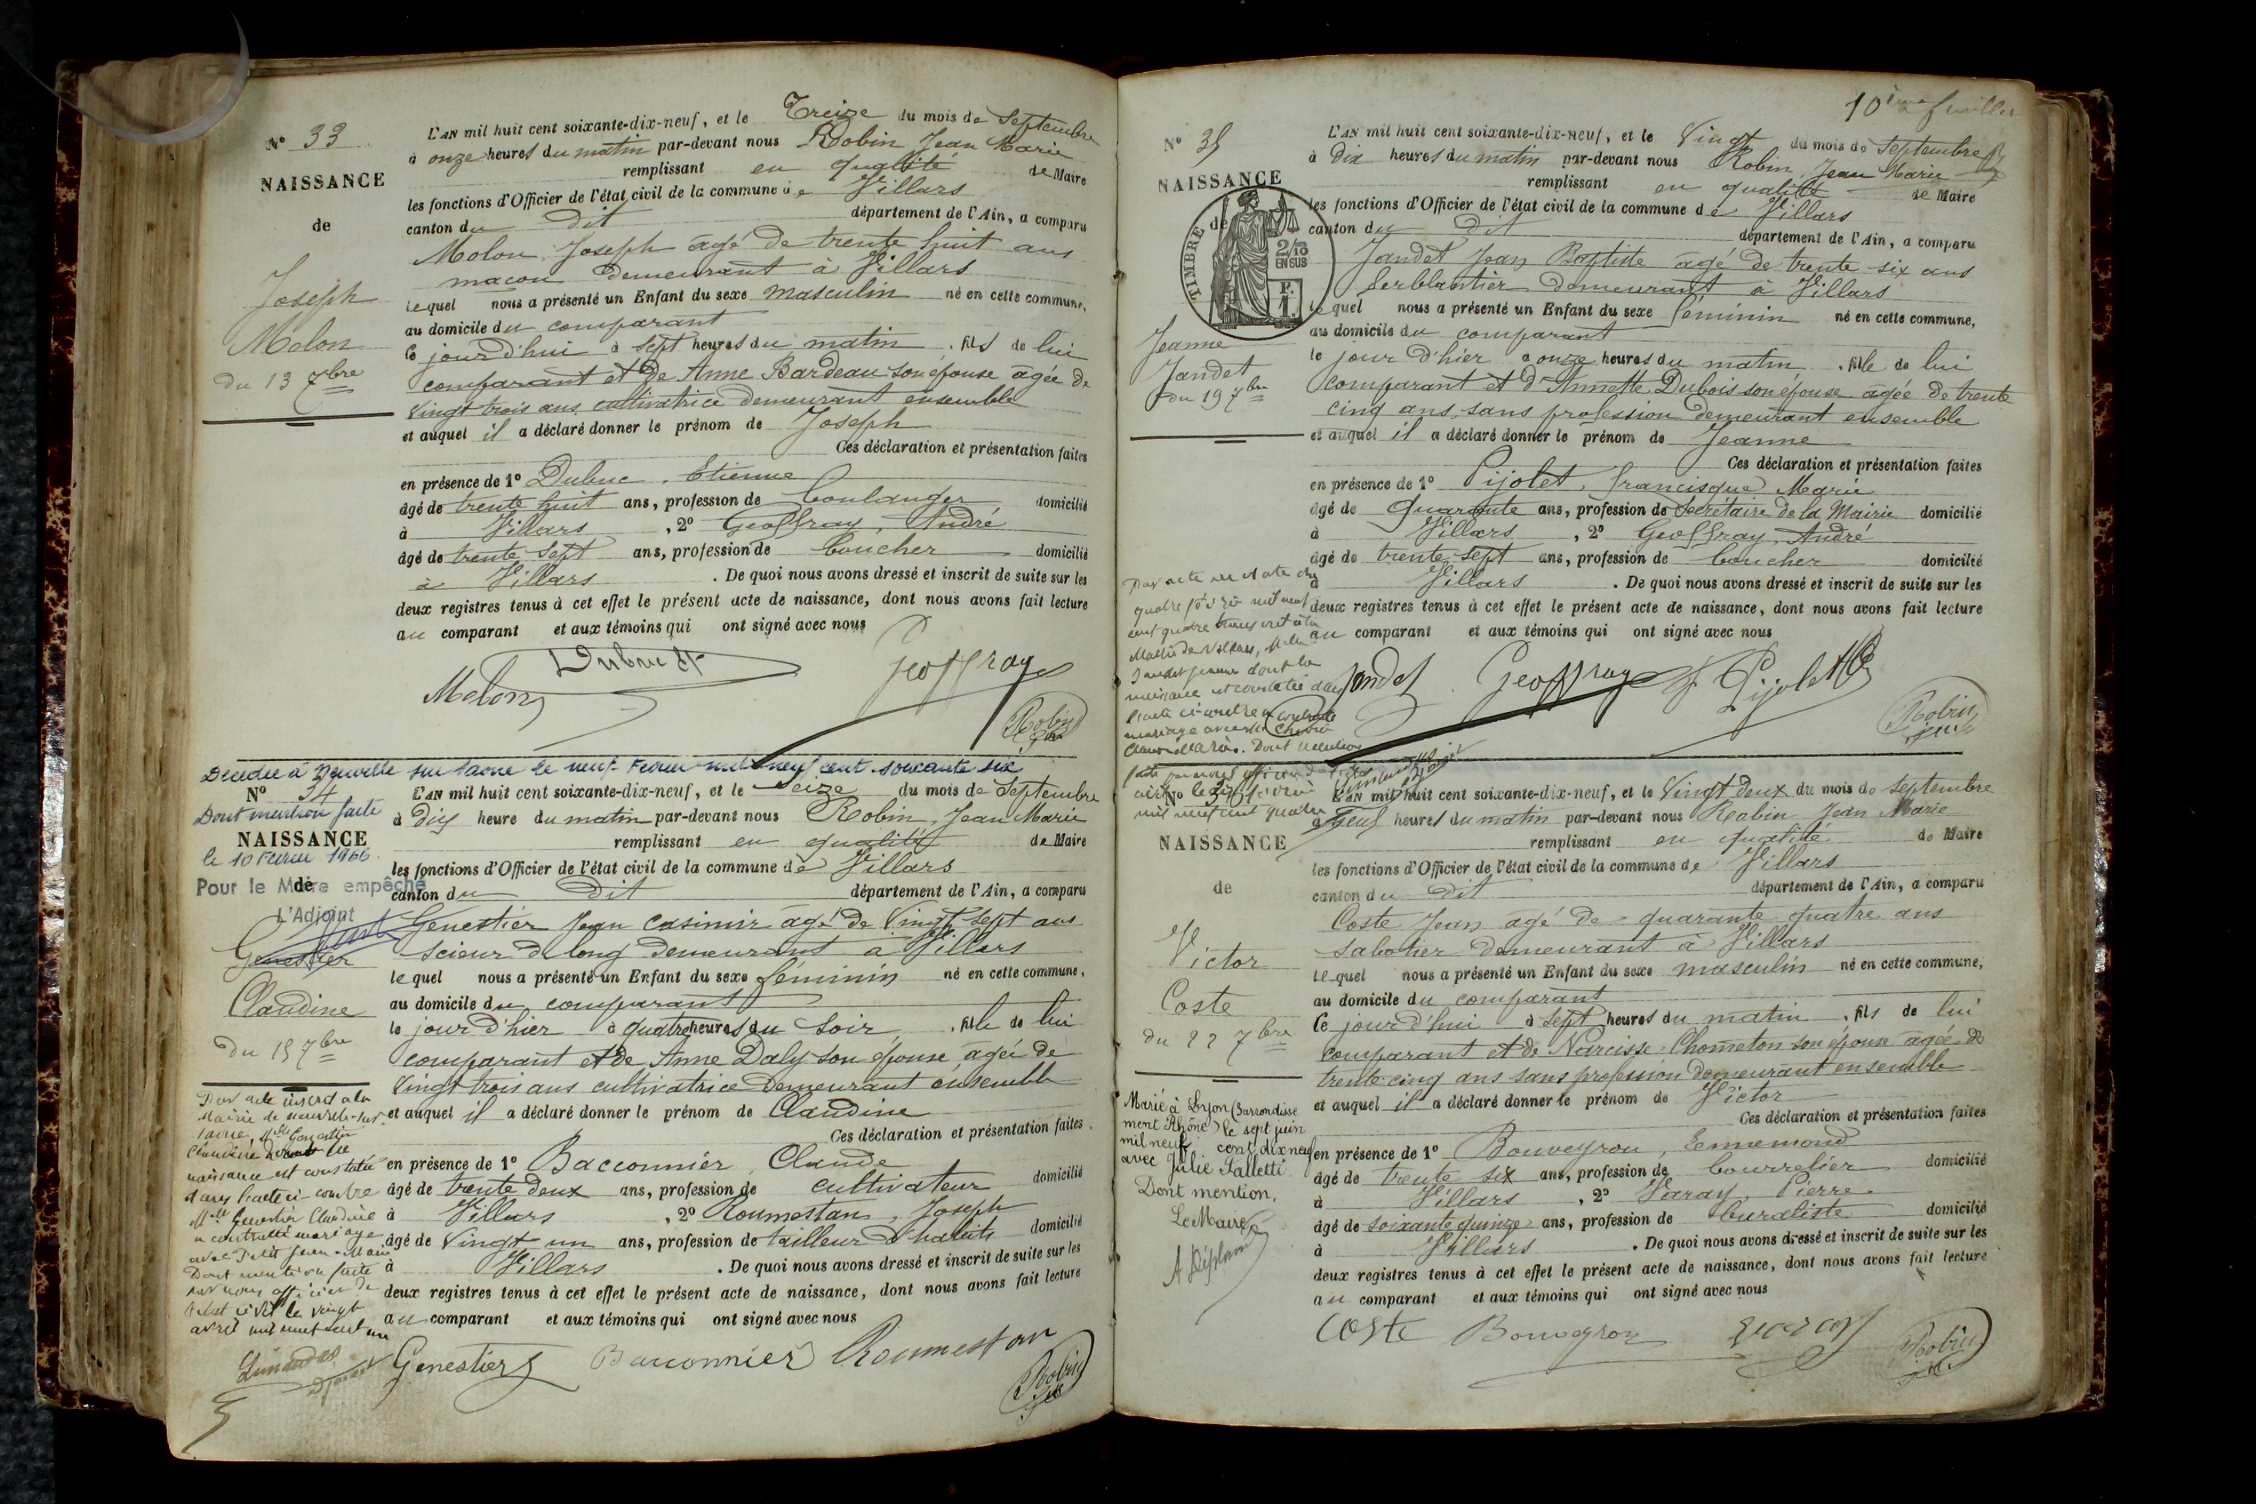 N° 33
NAISSANCE
de
Joseph
Melon
du 13 7bre
L'AN mil huit cent soixante-dix-neuf, et le Treize du mois de Septembre
à onze heures du matin par-devant nous Robin Jean Marie
remplissant en qualité de Maire
les fonctions d'Officier de l'état civil de la commune de Villars
canton du dit département de l'Ain, a comparu
Molon Joseph agé de trente huit ans
macon demeurant à Villars
lequel nous a présenté un Enfant du sexe masculin né en cette commune,
au domicile du comparant
ce jourd'hui à sept heures du matin, fils de lui
comparant et de Anne Bardeau son épouse agée de
vingt trois ans cultivatrice demeurant ensemble
et auquel il a déclaré donner le prénom de Joseph
Ces déclaration et présentation faites
en présence de 1° Dubuc, Etienne
âgé de trente huit ans, profession de boulanger domicilié
à Villars, 2° Geoffray, André
âgé de trente sept ans, profession de boucher domicilié
à Villars. De quoi nous avons dressé et inscrit de suite sur les
deux registres tenus à cet effet le présent acte de naissance, dont nous avons fait lecture
au comparant et aux témoins qui ont signé avec nous
Melon Dubuc Et Geoffray
Robin
Décédée à Neuville sur Saone le neuf Fevrier mil neuf cent soixante six
N° 34
Dont mention faite
NAISSANCE
le 10 Fevrier 1966
Pour le Maire empêché
de
L'Adjoint
Genestier
Claudine
du 15 7bre
Par acte inscrit a la
Mairie de neuville-sur-
Saone, Mlle Genestier
Claudine dont la
naissance est constatée
dans l'acte ci-contre
Mlle Genestier Claudine
a contracté mariage
avec Petit Jean-Marie
Dont mention faite
par nous officier de
l'état civil le vingt
avril mil neuf cent un
L'AN mil huit cent soixante-dix-neuf, et le Seize du mois de Septembre
à dix heure du matin par-devant nous Robin, Jean Marie
remplissant en qualité de Maire
les fonctions d'Officier de l'état civil de la commune de Villars
canton du dit département de l'Ain, a comparu
Genestier Jean Casimir agé de Vingt sept ans
scieur de long demeurant à Villars
lequel nous a présenté un Enfant du sexe féminin né en cette commune,
au domicile du comparant
le jour d'hier à quatre heures du soir, fille de lui
comparant et de Anne Daly son épouse agée de
vingt trois ans cultivatrice demeurant ensemble
et auquel il a déclaré donner le prénom de Claudine
Ces déclaration et présentation faites
en présence de 1° Bacconnier, Claude
âgé de trente deux ans, profession de cultivateur domicilié
à Villars, 2° Roumestan, Joseph
âgé de Vingt un ans, profession de tailleur d'habits domicilié
à Villars. De quoi nous avons dressé et inscrit de suite sur les
deux registres tenus à cet effet le présent acte de naissance, dont nous avons fait lecture
au comparant et aux témoins qui ont signé avec nous
Genestier Bacconnier Roumestan
Robin
10ème feuillet
N° 35
NAISSANCE
de
TIMBRE
2/10
EN SUS
F.
1.
Jeanne
Jandet
du 19 7bre
L'AN mil huit cent soixante-dix-neuf, et le Vingt du mois de Septembre
à Dix heures du matin par-devant nous Robin, Jean Marie
remplissant en qualité de Maire
les fonctions d'Officier de l'état civil de la commune de Villars
canton du dit département de l'Ain, a comparu
Jandet Jean Baptiste agé de trente six ans
ferblantier demeurant à Villars
lequel nous a présenté un Enfant du sexe féminin né en cette commune,
au domicile du comparant
le jour d'hier à onze heures du matin, fille de lui
comparant et d'Annette Dubois son épouse agée de trente
cinq ans, sans profession demeurant ensemble
et auquel il a déclaré donner le prénom de Jeanne
Ces déclaration et présentation faites
en présence de 1° Pijolet, Francisque Marie
âgé de Quarante ans, profession de Secrétaire de la Mairie domicilié
à Villars, 2° Geoffray, André
âgé de trente sept ans, profession de boucher domicilié
à Villars. De quoi nous avons dressé et inscrit de suite sur les
deux registres tenus à cet effet le présent acte de naissance, dont nous avons fait lecture
au comparant et aux témoins qui ont signé avec nous
Jandet Geoffray F Pijolet
Robin
Par acte en date du
quatre février mil neuf
cent quatre inscrit à la
Mairie de Villars, Mlle
Jandet Jeanne dont la
naissance est constatée dans
l'acte ci-contre a contracté
mariage avec
Dont mention
faite par nous officier de l'état
civil le
mil neuf cent quatre
N° 36
NAISSANCE
de
Victor
Coste
du 22 7bre
Marié à Lyon (3 arrondisse
ment Rhône) le sept juin
mil neuf cent dix neuf
avec Julie Salletti
Dont mention,
Le Maire
L'AN mil huit cent soixante-dix-neuf, et le Vingt deux du mois de septembre
à neuf heures du matin par-devant nous Robin Jean Marie
remplissant en qualité de Maire
les fonctions d'Officier de l'état civil de la commune de Villars
canton du dit département de l'Ain, a comparu
Coste Jean agé de quarante quatre ans
sabotier demeurant à Villars
lequel nous a présenté un Enfant du sexe masculin né en cette commune,
au domicile du comparant
ce jourd'hui à sept heures du matin, fils de lui
comparant et de Narcisse Chometon son épouse agée de
trente cinq ans sans profession demeurant ensemble
et auquel il a déclaré donner le prénom de Victor
Ces déclaration et présentation faites
en présence de 1° Bouveyron, Ennemond
âgé de trente six ans, profession de bourrelier domicilié
à Villars, 2° Varay, Pierre
âgé de soixante quinze ans, profession de buraliste domicilié
à Villars. De quoi nous avons dressé et inscrit de suite sur les
deux registres tenus à cet effet le présent acte de naissance, dont nous avons fait lecture
au comparant et aux témoins qui ont signé avec nous
Coste Bouveyron
Robin